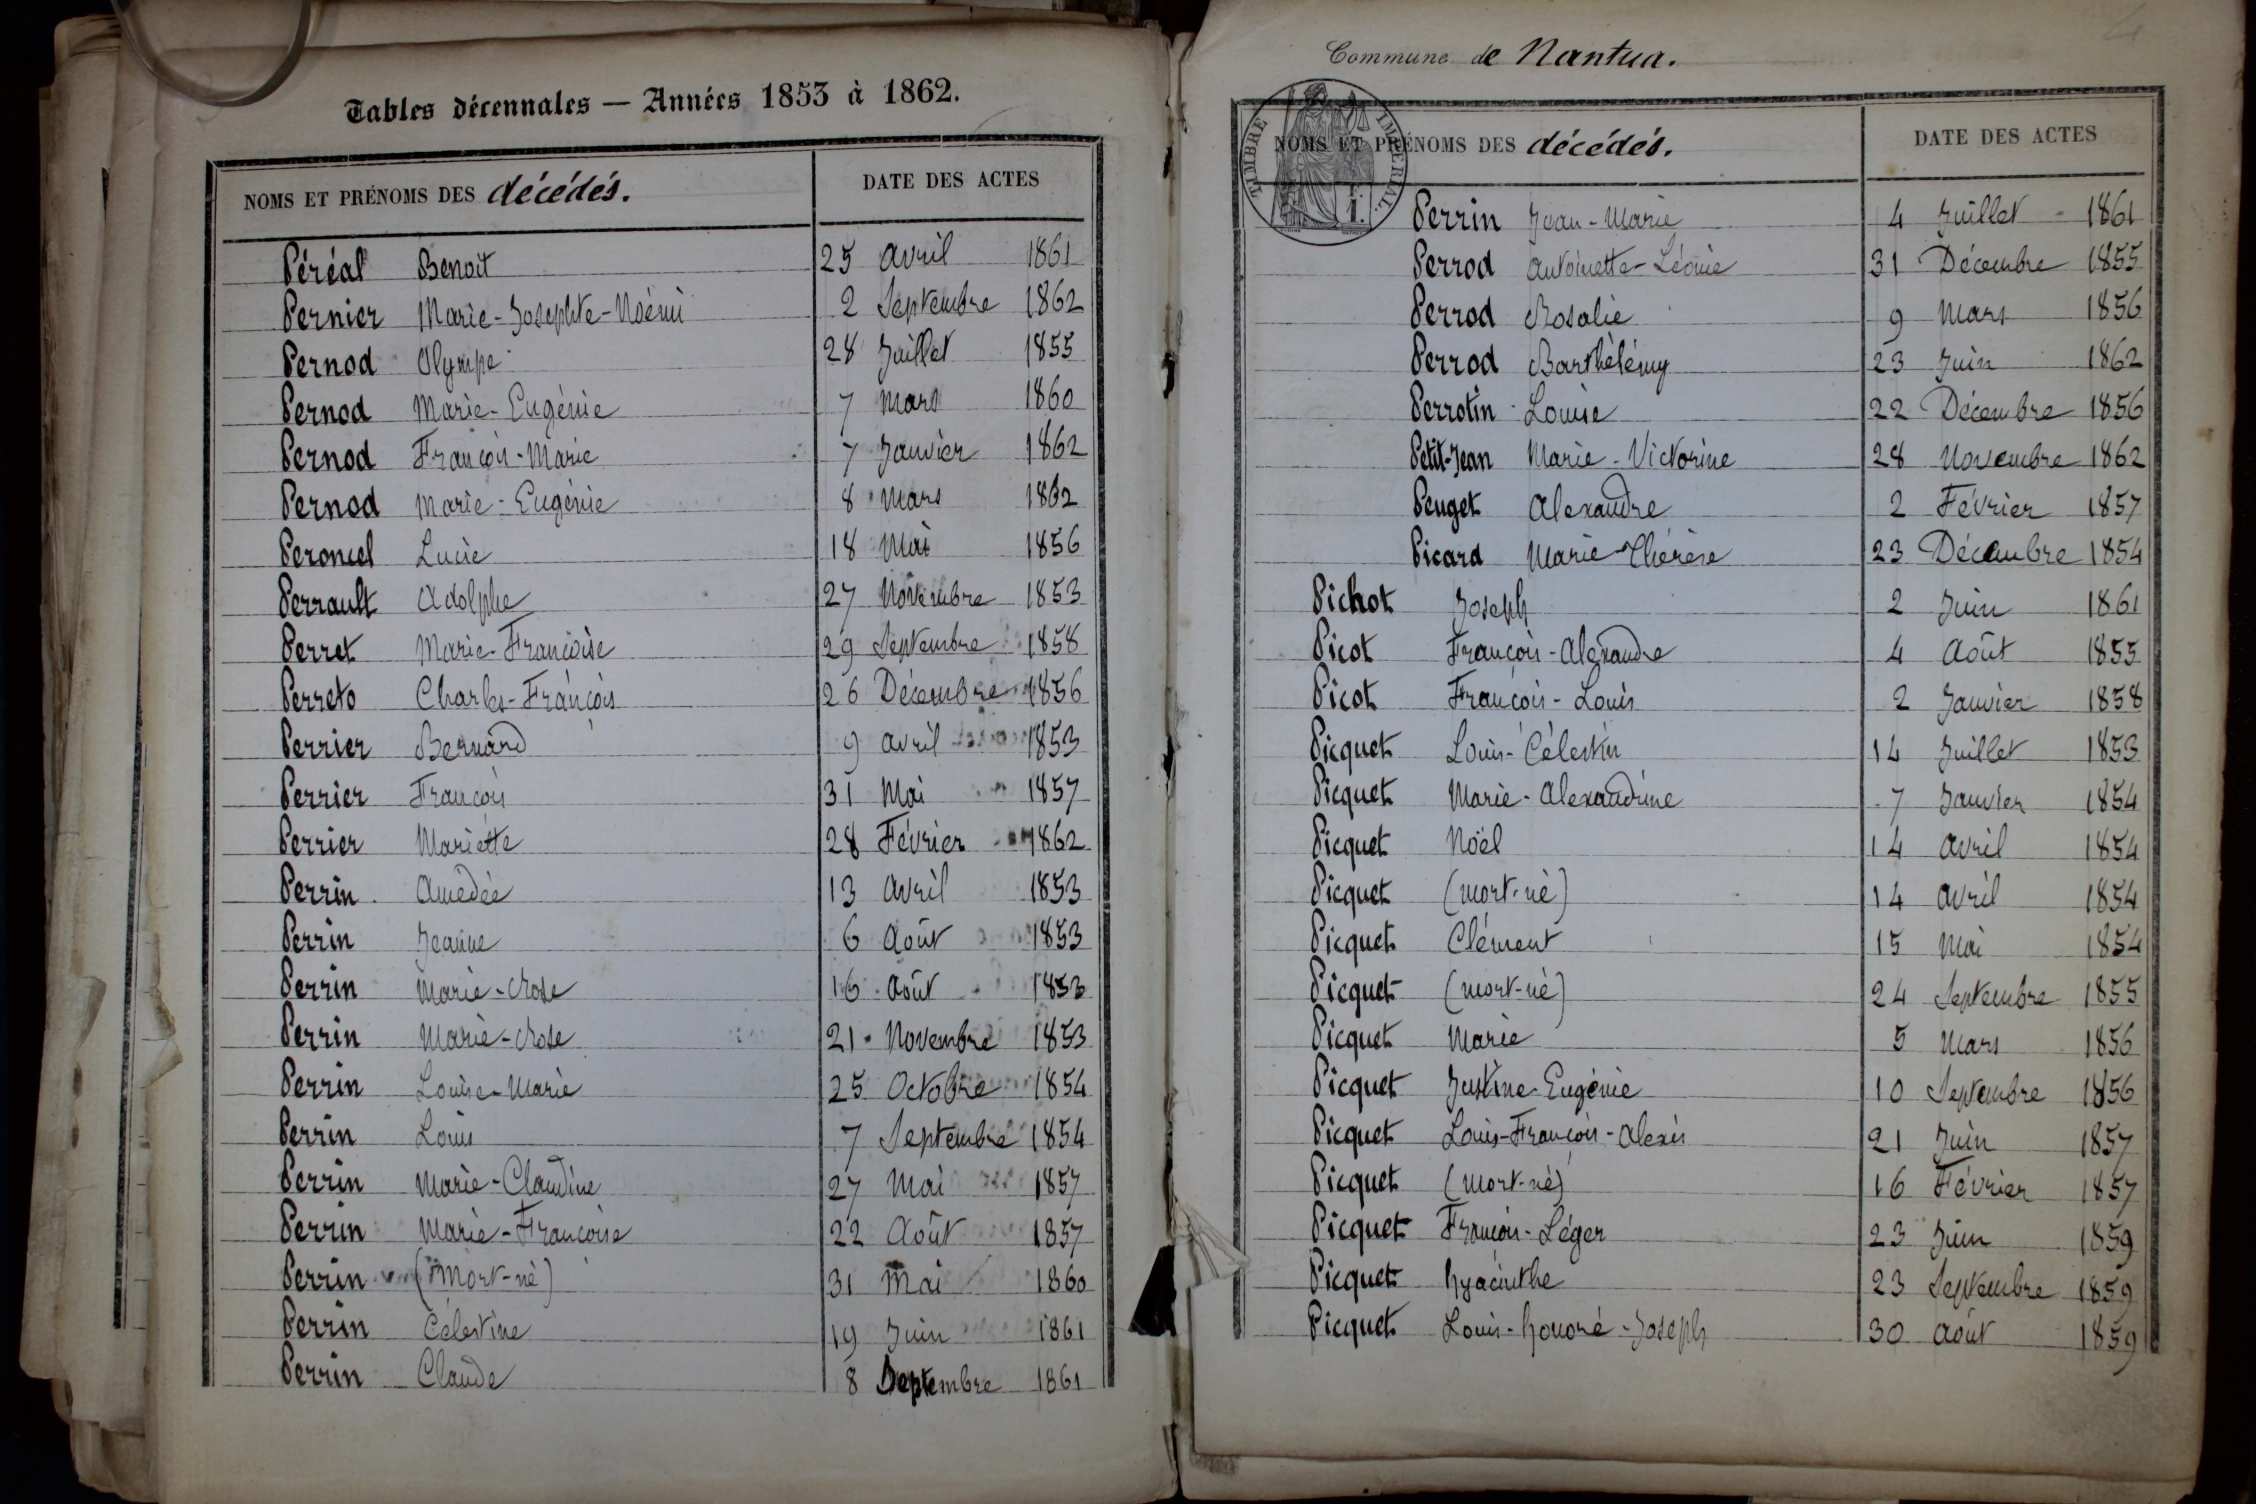 Tables décennales — Années 1853 à 1862.
NOMS ET PRÉNOMS DES décédés. DATE DES ACTES
Péréal Benoit 25 avril 1861
Pernier Marie-Josephte-Noémi 2 Septembre 1862
Pernod Olympe 28 Juillet 1855
Pernod Marie-Eugénie 7 mars 1860
Pernod François-Marie 7 Janvier 1862
Pernod Marie-Eugénie 8 mars 1862
Peroncel Lucie 18 Mai 1856
Perrault Adolphe 27 Novembre 1853
Perret Marie-Françoise 29 Septembre 1858
Perreto Charles-François 26 Décembre 1856
Perrier Bernard 9 avril 1853
Perrier François 31 Mai 1857
Perrier Mariette 28 Février 1862
Perrin Amédée 13 avril 1853
Perrin Jeanne 6 août 1853
Perrin Marie-Rose 16 août 1853
Perrin Marie-Rose 21 Novembre 1853
Perrin Louise-Marie 25 Octobre 1854
Perrin Louis 7 Septembre 1854
Perrin Marie-Claudine 27 Mai 1857
Perrin Marie-Françoise 22 Août 1857
Perrin (Mort-né) 31 Mai 1860
Perrin Célestine 19 Juin 1861
Perrin Claude 8 Septembre 1861
Commune de Nantua.
TIMBRE IMPERIAL.
NOMS ET PRÉNOMS DES décédés. DATE DES ACTES
Perrin Jean-Marie 4 Juillet 1861
Perrod Antoinette-Léonie 31 Décembre 1855
Perrod Rosalie 9 Mars 1856
Perrod Barthélémy 23 Juin 1862
Perrotin Louise 22 Décembre 1856
Petit-Jean Marie-Victorine 28 Novembre 1862
Peuget Alexandre 2 Février 1857
Picard Marie-Thérèse 23 Décembre 1854
Pichot Joseph 2 Juin 1861
Picot François-Alexandre 4 Août 1855
Picot François-Louis 2 Janvier 1858
Picquet Louis-Célestin 14 Juillet 1853
Picquet Marie-Alexandrine 7 Janvier 1854
Picquet Noël 14 avril 1854
Picquet (mort-né) 14 avril 1854
Picquet Clément 15 Mai 1854
Picquet (mort-né) 24 Septembre 1855
Picquet Marie 5 Mars 1856
Picquet Justine-Eugénie 10 Septembre 1856
Picquet Louis-François-Alexis 21 Juin 1857
Picquet (Mort-né) 16 Février 1857
Picquet François-Léger 23 Juin 1859
Picquet hyacinthe 23 Septembre 1859
Picquet Louis-honoré-Joseph 30 août 1859